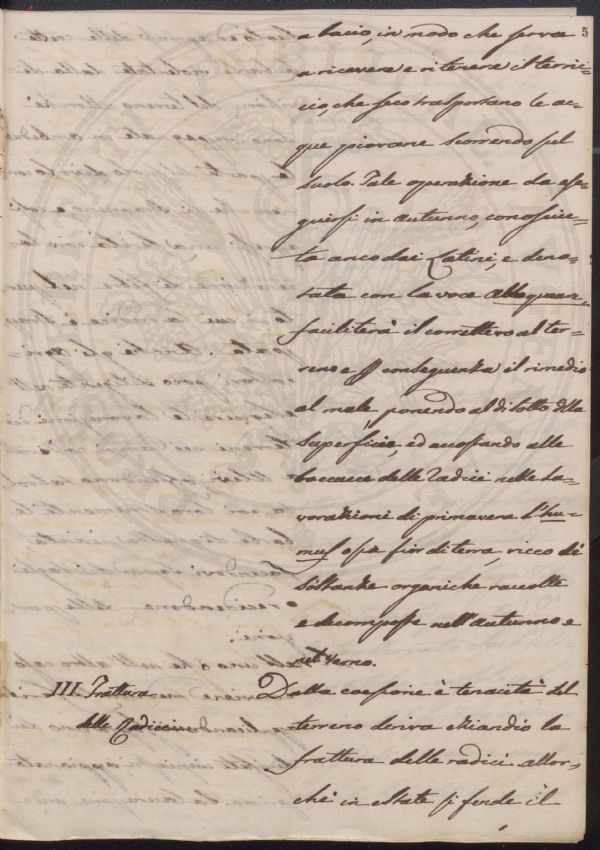 5
a bacio, in modo che serva
a ricevere e ritenere il terric-
cio, che seco trasportano le ac-
que piovane scorrendo sul
suolo. Tale operazione da ese-
guirsi in autunno, conosciu-
ta anco dai Latini, e deno-
tata con la voce
faciliterà il correttivo al ter-
reno e p conseguenza il rimedio
al male, ponendo al disotto della
superficie, ed accostando alle
boccucce delle radici nelle la-
vorazioni di primavera l'hu-
mus ossia fior di terra, ricco di
sostanze organiche raccolte
e decomposte nell'autunno e
nel verno.
III. Frattura
delle Radici
Dalla coesione è tenacità del
terreno deriva eziandio la
frattura delle radici allor-
chè in estate si fende il